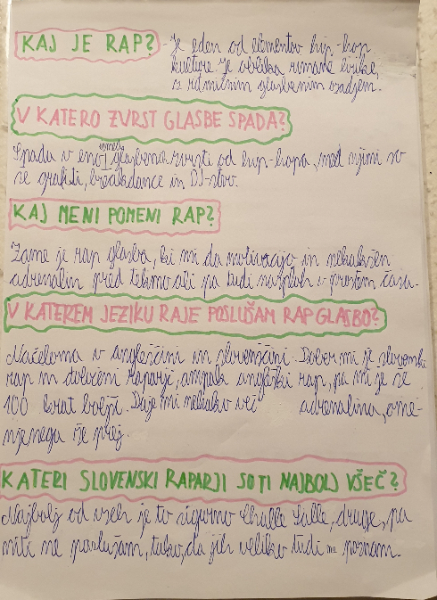 KAJ JE RAP? - Je eden od elementov hip-hop
kulture. Je oblika rimane lirike,
z ritmičnim glasbenim ozadjem.
V KATERO ZVRST GLASBE SPADA?
Spada v eno izmed glasbene zvrsti od hip-hopa, med njimi so
še grafiti, breakdance in DJ-stvo.
KAJ MENI POMENI RAP?
Zame je rap glasba, ki mi da motivacijo in nekakšen
adrenalin pred tekmo ali pa tudi nasploh v prostem času.
V KATEREM JEZIKU RAJE POSLUŠAM RAP GLASBO?
Načeloma v angleščini in slovenščini. Dober mi je slovenski
rap in določeni raparji, ampak angleški rap, pa mi je še
100 krat boljši. Daje mi nekako več adrenalina, ome-
njenega že prej.
KATERI SLOVENSKI RAPARJI SO TI NAJBOLJ VŠEČ?
Najbolj od vseh je to sigurno Challe Salle, druge, pa
niti ne poslušam, tako, da jih veliko tudi ne poznam.